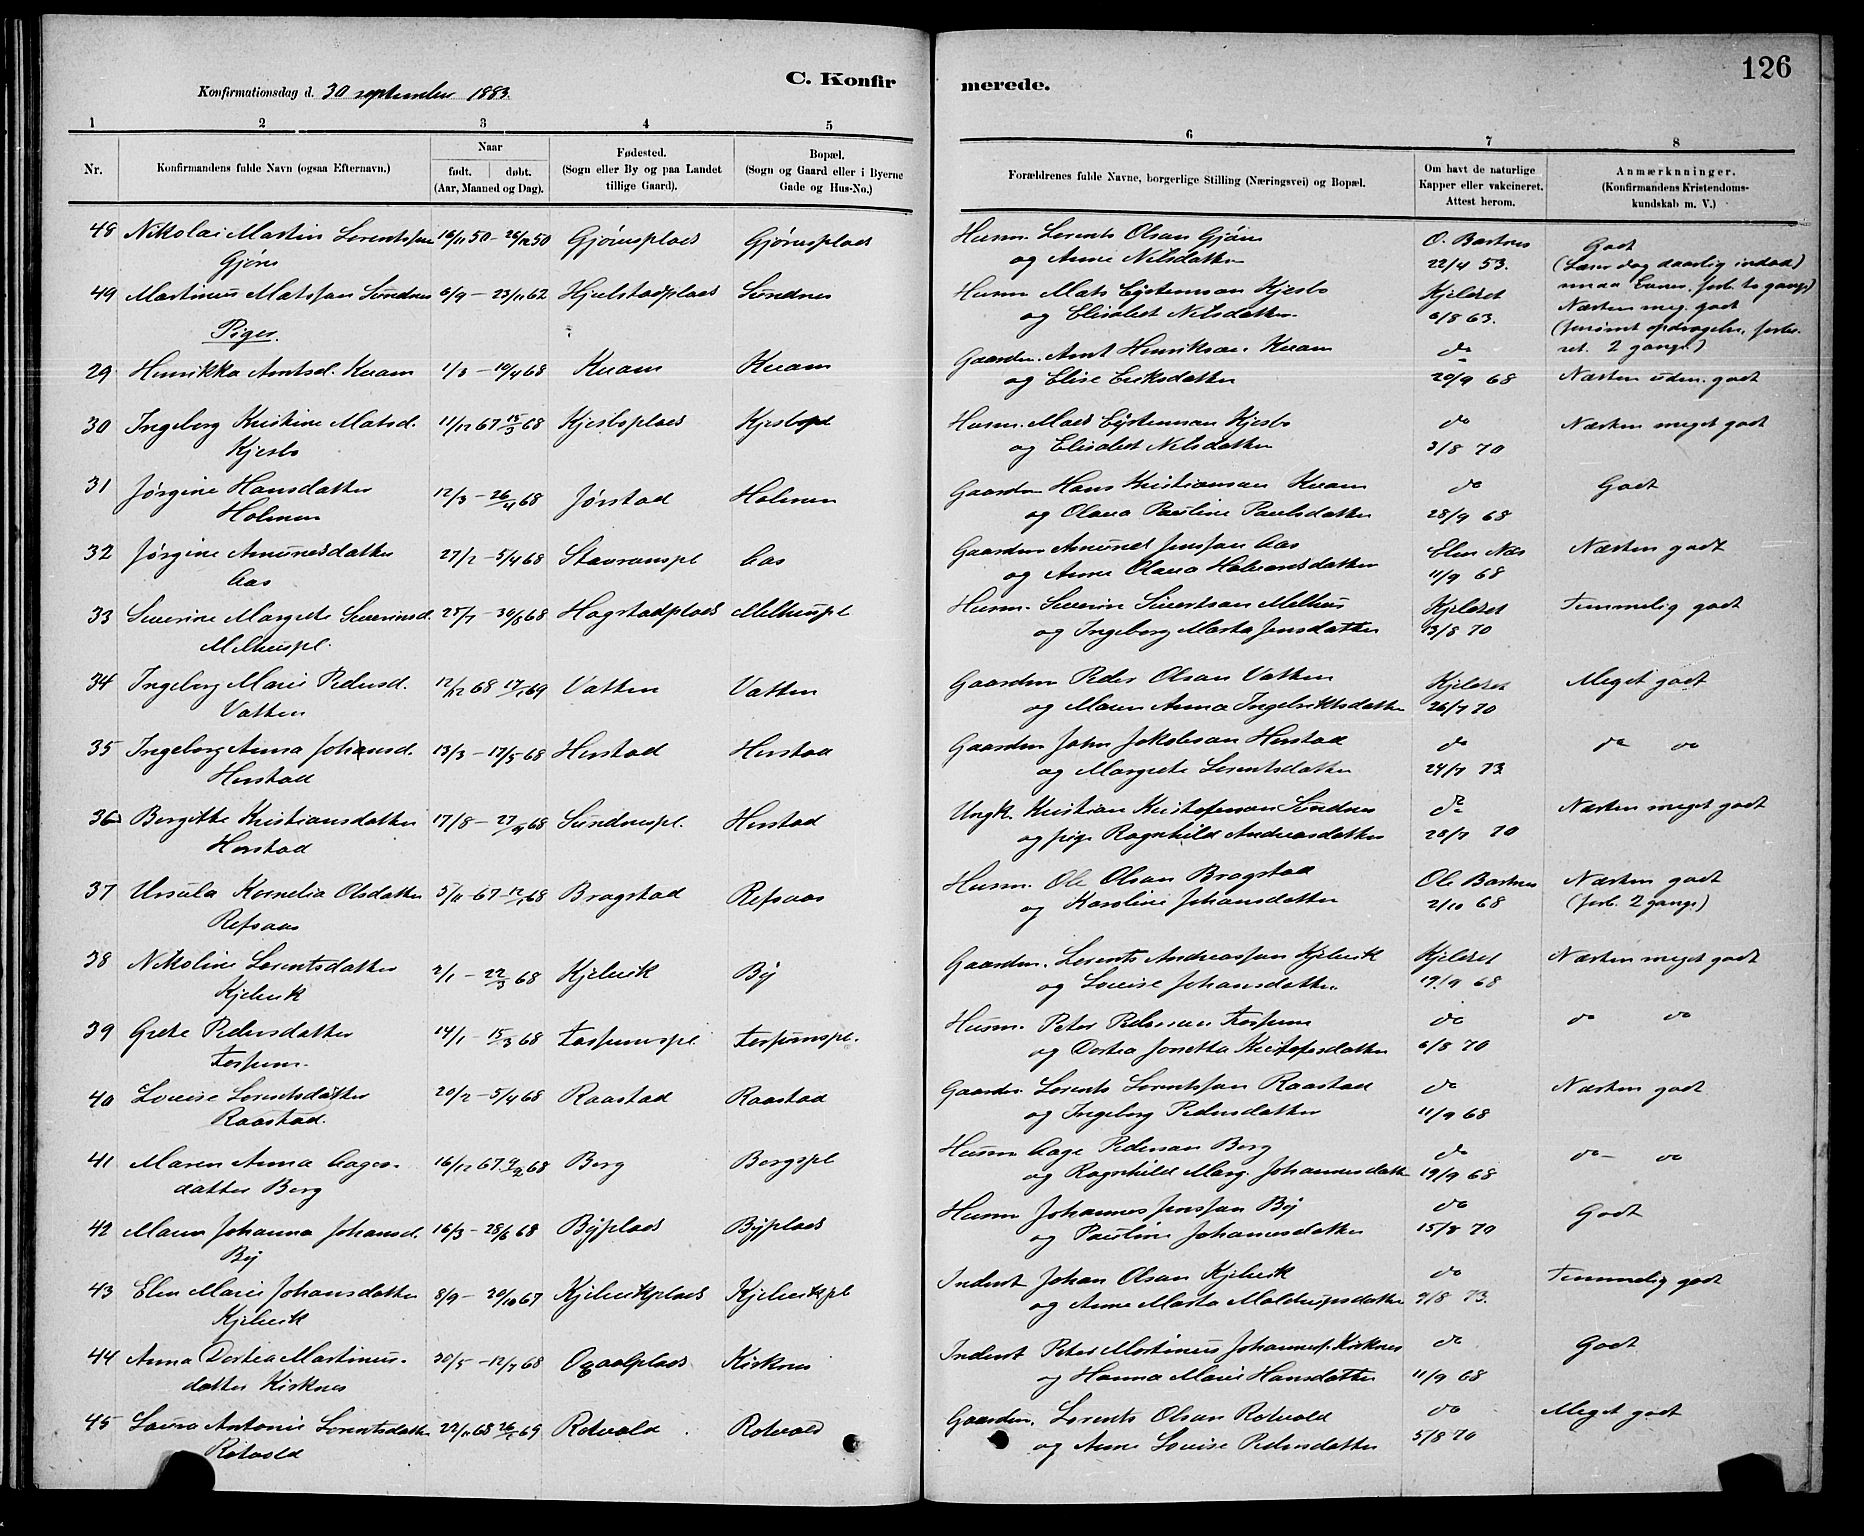 126
C. Konfirmerede.
Konfirmationsdag d. 30 september 1883.
1 2 3 4 5 6 7 8
Nr. Konfirmandens fulde Navn (ogsaa Efternavn.) Naar født. døbt. (Aar, Maaned og Dag). Fødested. (Sogn eller By og paa Landet tillige Gaard). Bopæl. (Sogn og Gaard eller i Byerne Gade og Hus-No.) Forældrenes fulde Navne, borgerlige Stilling (Næringsvei) og Bopæl. Om havt de naturlige Kopper eller vakcineret. Attest herom. Anmærkninger. (Konfirmandens Kristendoms-kundskab m. V.)
48 Nikolai Martin Lorentssen 16/11 50 - 26/12 50 Gjørvsplads Gjørvsplads Husm. Lorents Olsen Gjørv O. Bartnes Godt
Gjørv og Anne Nilsdatter 22/4 53. (Læser dog daarlig indad)
49 Martinus Matssen Sundnes 6/9 - 23/11 62 Hjelstadplads Sundnes Husm Mats Eystensen Kjesbo Kjelset
og Elisabet Nilsdatter 6/8 63. Næsten meg. godt
Piger. (forsømt opdragelse, forbe-
ret. 2 gange)
29 Henrikka Arntsd. Kvam 1/3 - 10/4 68 Kvam Kvam Gaardm. Arnt Henriksen Kvam do
og Elise Eriksdatter 20/9 68 Næsten uden. godt
30 Ingeborg Kristine Matsd. 11/12 67 15/3 68 Kjesboplads Kjesbopl Husm. Mats Eystensen Kjesbo do Næsten meget godt
Kjesbo og Elisabet Nilsdatter 3/8 70
31 Jørgine Hansdatter 12/3 - 26/4 68 Jørstad Holmen Gaardm Hans Kristiansen Kvam do Godt
Holmen og Olava Pauline Paulsdatter 28/9 68
32 Jørgine Amundsdatter 27/2 - 5/4 68 Aas Gaardm Amund Jenssen Aas Elen Næs Næsten godt
Aas og Anne Olava Halvorsdatter 11/9 68
33 Severine Margrete Severinsd. 25/7 - 30/8 68 Hagstadplads Melhuspl Husm. Severin Sivertsen Melhus Kjelset Temmelig godt
Melhuspl. og Ingeborg Marta Jensdatter 13/8 70
34 Ingeborg Marie Pedersd. 12/12 68 17/1 69 Vatten Vatten Gaardm Peder Olsen Vatten Kjelset Meget godt
Vatten og Maren Anna Ingebriktsdatter 26/7 70
35 Ingeborg Anna Johansd. 13/3 - 17/5 68 Herstad Herstad Gaardm John Jakobsen Herstad do do do
Herstad og Margrete Lorentsdatter 24/7 73
36 Bergitte Kristiansdatter 17/8 - 27/9 68 Sundnespl. Herstad Ungk. Kristian Kristofersen Sundnes do Næsten meget godt
Herstad og pige Ragnhild Andreasdatter 28/7 70
37 Ursula Kornelia Olsdatter 5/11 67 12/1 68 Bragstad Refsaas Husm. Ole Olsen Bragstad Ole Bartnes Næsten godt
Refsaas og Karoline Johansdatter 2/10 68 (forb. 2 gange)
38 Nikoline Lorentsdatter 2/1 - 22/3 68 Kjelvik By Gaardm. Lorents Andreassen Kjelvik Kjelset Næsten meget godt
Kjelvik og Lovise Johansdatter 17/9 68
39 Grete Pedersdatter 14/1 - 15/3 68 Forsumspl. Forsumspl. Husm. Peter Pedersen Forsum do do do
Forsum og Dortea Jonetta Kristofersdatter 6/8 70
40 Lovise Lorentsdatter 20/2 - 5/4 68 Raastad Raastad Gaardm Lorents Lorentssen Raastad do Næsten godt
Raastad. og Ingeborg Pedersdatter 11/9 68
41 Maren Anna Aages- 16/12 67 9/2 68 Berg Bergspl Husm Aage Pedersen Berg do do do
datter Berg og Ragnhild Marg. Johannesdatt 19/9 68
42 Maren Johanna Johansd. 16/3 - 28/6 68 Byplads Byplads Husm Johannes Jenssen By do Godt
By og Pauline Johannesdatter 15/8 70
43 Elen Marie Johansdatter 8/9 - 20/10 67 Kjelvikplads Kjelvikpl Inderst Johan Olsen Kjelvik do Temmelig godt
Kjelvik og Anne Marta Moldrupsdatter 9/8 73.
44 Anna Dortea Martinus- 30/5 - 12/7 68 Kirknes Inderst Peter Martinus Johanness. Kirknes do Godt
datter Kirknes og Hanna Marie Hansdatter 11/9 68
45 Laura Antonie Lorentsdatter 22/11 68 26/1 69 Rotvold Rotvold Gaardm. Lorents Olsen Rotvold do Meget godt
Rotvold og Anne Lovise Pedersdatter 5/8 70